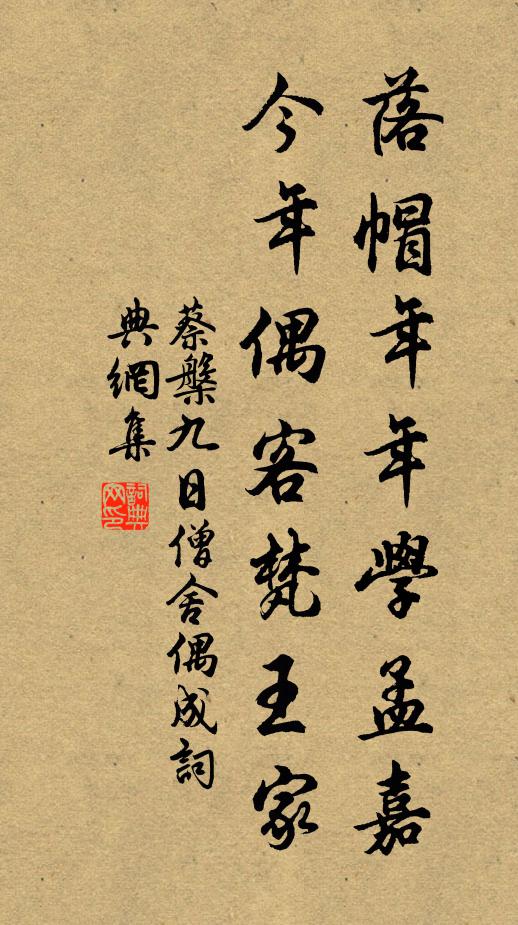 落帽年年學孟嘉
今年偶客梵王家
蔡槃九日僧舍偶成詞
典網集
詞典网印